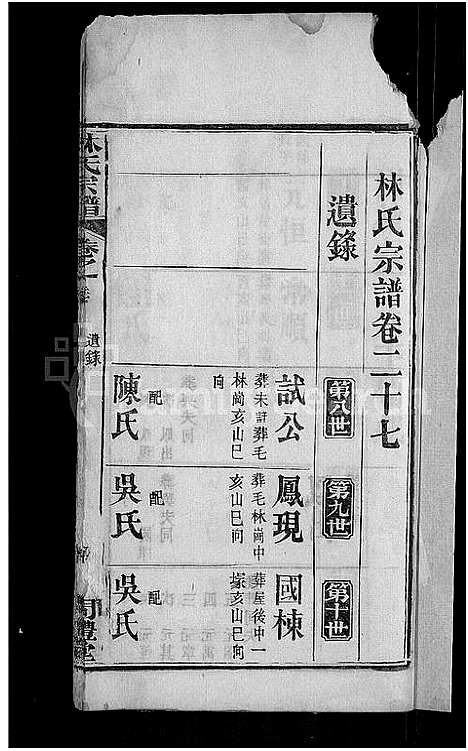 林氏宗譜卷二十七
遺錄
第八世
第九世
第十世
試公
葬未詳葬毛
林崗亥山巳
向
配
陳氏
鳳現
葬毛林崗中
亥山巳向
配
吳氏
國棟
葬屋後中一
塚亥山巳向
配
吳氏
林氏宗譜
遺錄